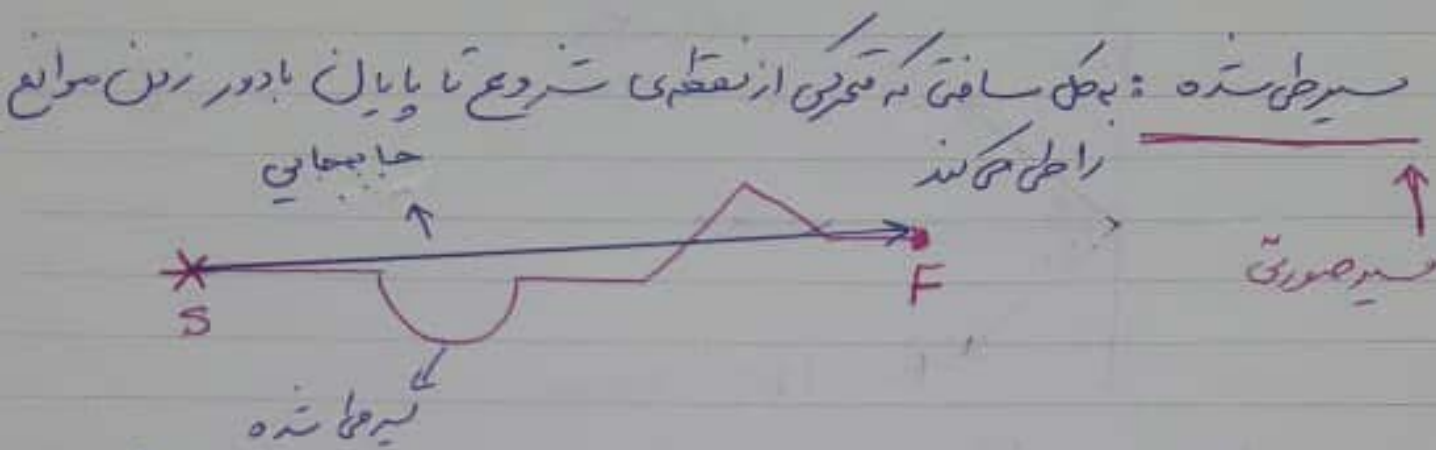 مسیر طی شده : به کل مسافتی که متحرکی از نقطه‌ی شروع تا پایان با دور زدن موانع
را طی می کند
جابجایی
مسیر صورتی
S
F
مسیر طی شده